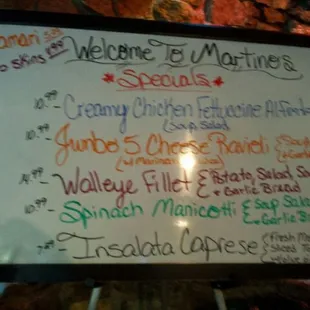 Welcome To Martinos
*Specials*
10.99 - Creamy Chicken Fettuccine Alfredo
(Soup Salad
10.99 Jumbo 5 Cheese Ravioli {Soup
(w/ Marinara
14.99 - Walleye Fillet { Potato, Salad, So
+ Garlic Bread
10.99 - Spinach Manicotti { Soup Sala
+ Garlic Br
7.99 - Insalata Caprese {Fresh Mo
Sliced To